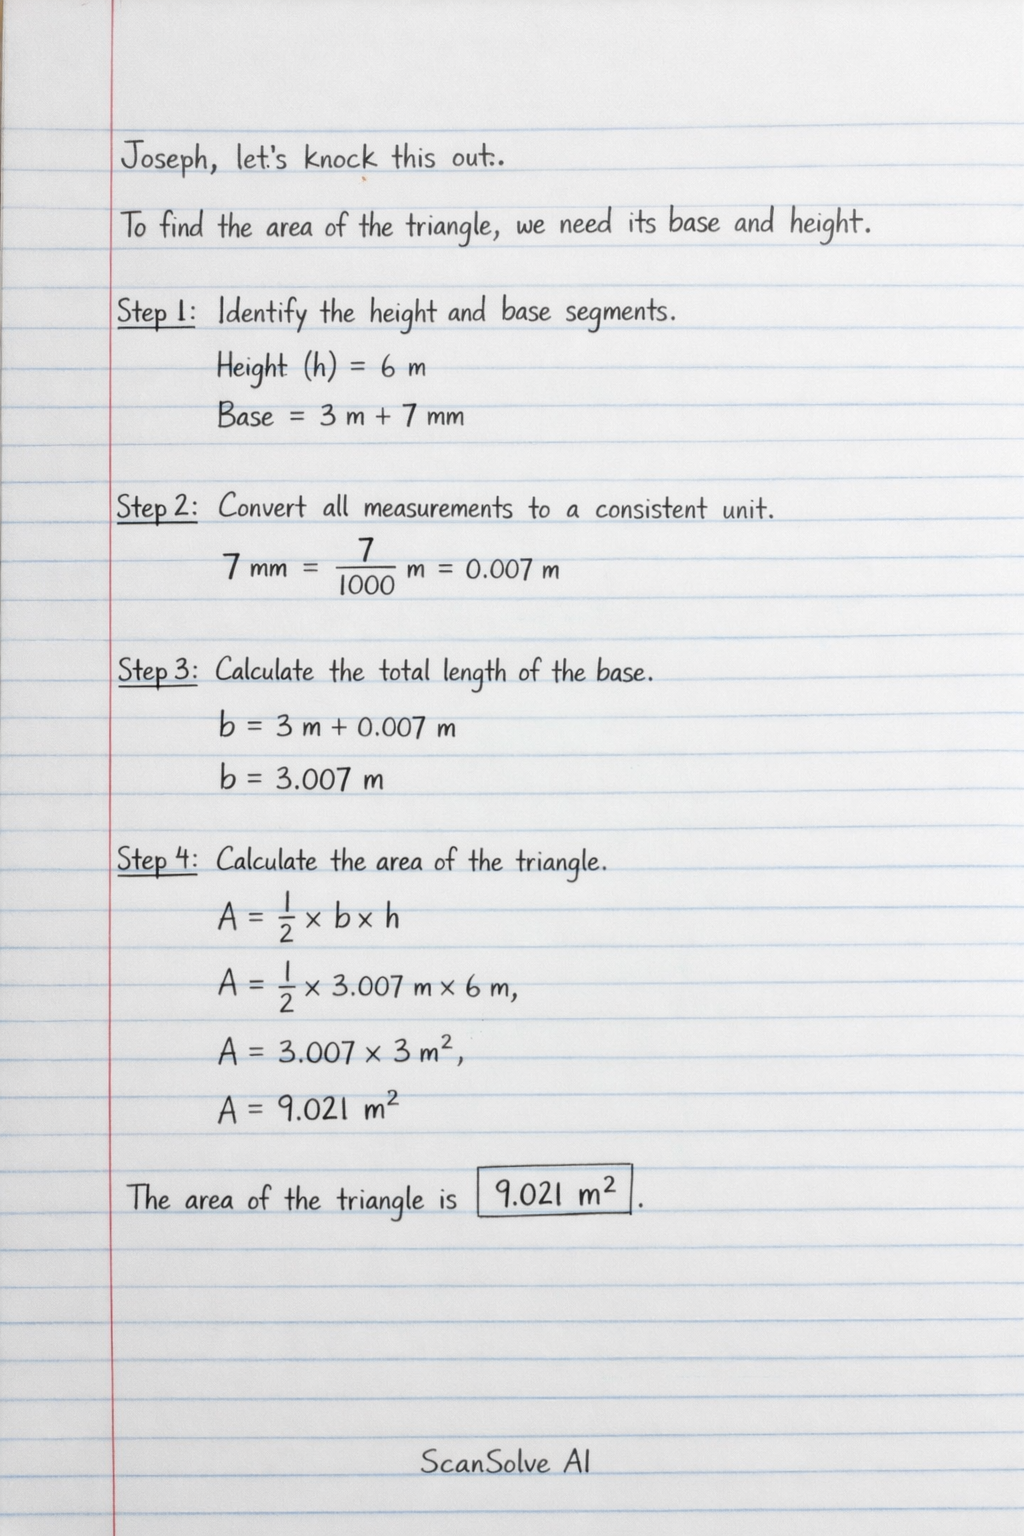 Joseph, let's knock this out..
To find the area of the triangle, we need its base and height.
Step 1: Identify the height and base segments.
Height (h) = 6 m
Base = 3 m + 7 mm
Step 2: Convert all measurements to a consistent unit.
7 mm = 7/1000 m = 0.007 m
Step 3: Calculate the total length of the base.
b = 3 m + 0.007 m
b = 3.007 m
Step 4: Calculate the area of the triangle.
A = 1/2 × b × h
A = 1/2 × 3.007 m × 6 m,
A = 3.007 × 3 m²,
A = 9.021 m²
The area of the triangle is 9.021 m².
ScanSolve AI